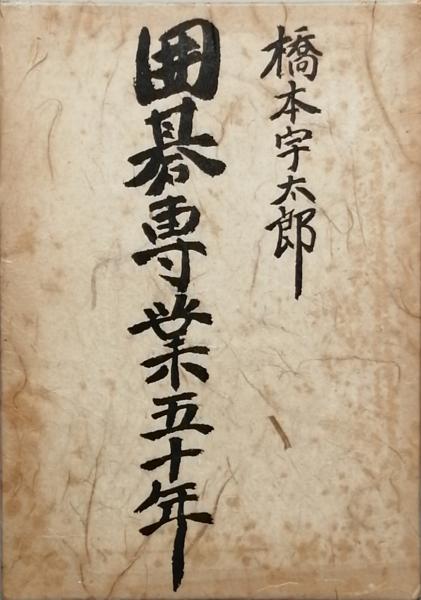 橋本宇太郎
囲碁専業五十年